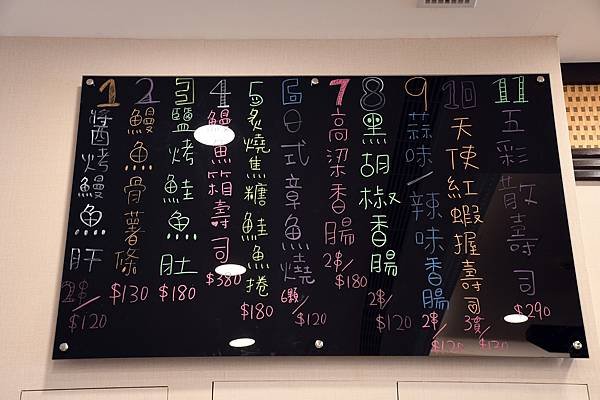 1 醬烤鰻魚肝 2串/$120
2 鰻魚骨薯條 $130
3 鹽烤鮭魚肚 $180
4 鰻魚箱壽司 $380
5 炙燒焦糖鮭魚捲 $180
6 日式章魚燒 6顆/$120
7 高梁香腸 2串/$180
8 黑胡椒香腸 2串/$120
9 蒜味/辣味香腸 2串/$120
10 天使紅蝦握壽司 3貫/$130
11 五彩散壽司 $290